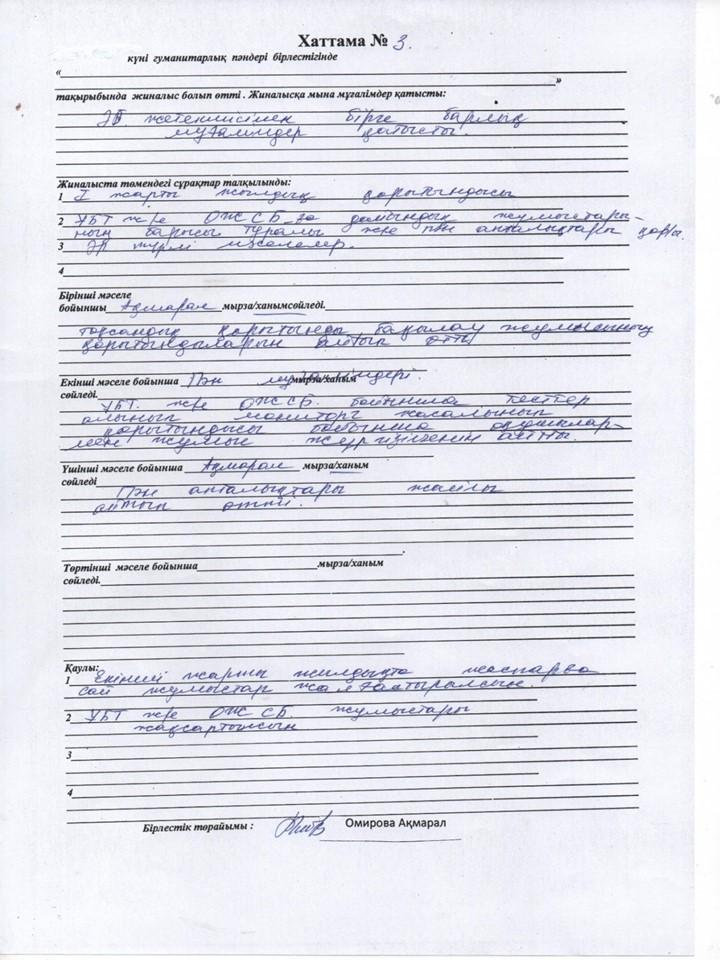 Хаттама № 3.
күні гуманитарлық пәндері бірлестігінде
« »
тақырыбында жиналыс болып өтті. Жиналысқа мына мұғалімдер қатысты:
ӘБ жетекшісімен бірге барлық
мұғалімдер қатысты.
Жиналыста төмендегі сұрақтар талқыланды:
1 I жарты жылдық қорытындысы
2 ҰБТ және ОЖСБ-ға дайындық жұмыстары-
ның барысы туралы және пән апталықтары
3 Әр түрлі мәселелер.
4
Бірінші мәселе
бойыншы Ақмарал мырза/ханымсөйледі.
тоқсандық қорытынды бақылау жұмысының
қорытындыларын айтып өтті
Екінші мәселе бойынша Пән мұғалімдері. мырза/ханым
сөйледі.
ҰБТ. және ОЖСБ. бойынша тесттер
алынып жасалынып
қорытындысы бойынша оқушылар-
мен жұмыс жүргізілгенін айтты.
Үшінші мәселе бойынша Ақмарал мырза/ханым
сөйледі
Пән апталықтары жайлы
айтып өтті.
Төртінші мәселе бойынша мырза/ханым
сөйледі.
Қаулы:
1 Екінші жарты жылдықта жоспарға
сай жұмыстар жалғастырылсын.
2 ҰБТ және ОЖСБ. жұмыстары
жақсартылсын
3
4
Бірлестік төрайымы : Омирова Ақмарал